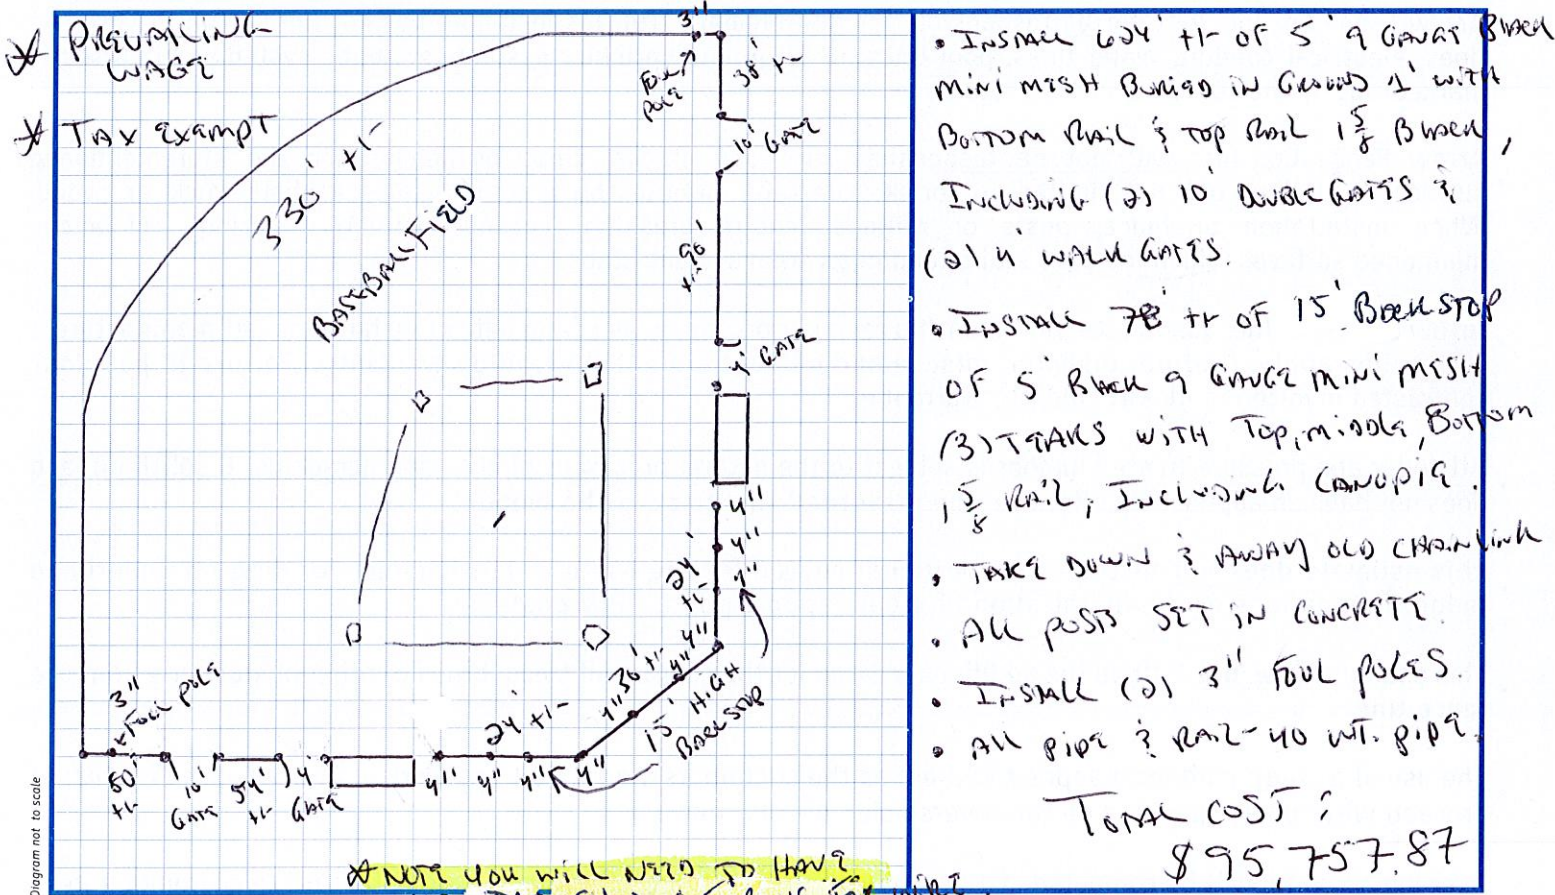 * PREVAILING
WAGE
* TAX EXEMPT
330' +/-
BASEBALL FIELD
3"
FOUL
POLE
38' +/-
10' GATE
90' +/-
4' GATE
4"
4"
24' +/-
4"
4"
4"
30' +/-
4"
15' HIGH
BACKSTOP
3"
FOUL POLE
24' +/-
+/-
10'
GATE
54'
+/-
4'
GATE
4"
4"
4"
4"
Diagram not to scale
* NOTE YOU WILL NEED TO HAVE
• INSTALL 624' +/- OF 5' 9 GAUGE BLACK
MINI MESH BURIED IN GROUND 1' WITH
BOTTOM RAIL & TOP RAIL 1 5/8 BLACK,
INCLUDING (2) 10' DOUBLE GATES &
(2) 4' WALK GATES.
• INSTALL 78' +/- OF 15' BACKSTOP
OF 5' BLACK 9 GAUGE MINI MESH
(3) TEARS WITH TOP, MIDDLE, BOTTOM
1 5/8 RAIL, INCLUDING CANOPIE.
• TAKE DOWN & AWAY OLD CHAINLINK
• ALL POSTS SET IN CONCRETE.
• INSTALL (2) 3" FOUL POLES.
• ALL PIPE & RAIL - 40 WT. PIPE.
TOTAL COST:
$95,757.87